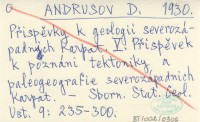 O ANDRUSOV D. 1930.
Příspěvky k geologii severozá-
padných Karpat. V. Příspěvek
k poznání tektoniky, a
paleogeografie severozápadních
Karpat. - Sborn. Stát. Geol.
Úst. 9: 235-300.